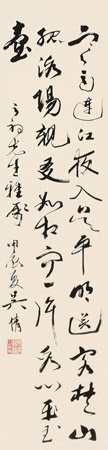 寒雨連江夜入吴平明送客楚山
孤洛陽親友如相問一片冰心在玉
壺
先生雅屬
夏吴倩